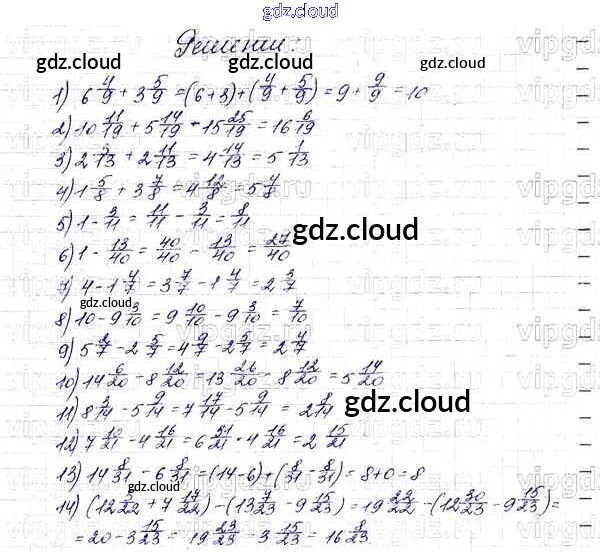 gdz.cloud
Решении:
gdz.cloud gdz.cloud
1) 6 4/9 + 3 5/9 = (6+3)+(4/9 + 5/9) = 9 + 9/9 = 10
2) 10 11/19 + 5 14/19 = 15 25/19 = 16 6/19
3) 2 3/13 + 2 11/13 = 4 14/13 = 5 1/13
4) 1 5/8 + 3 7/8 = 4 12/8 = 5 4/8
5) 1 - 3/11 = 11/11 - 3/11 = 8/11
gdz.cloud
6) 1 - 13/40 = 40/40 - 13/40 = 27/40
7) 4 - 1 4/7 = 3 7/7 - 1 4/7 = 2 3/7
gdz.cloud
8) 10 - 9 3/10 = 9 10/10 - 9 3/10 = 7/10
gdz.cloud
9) 5 2/7 - 2 5/7 = 4 9/7 - 2 5/7 = 2 4/7
10) 14 6/20 - 8 12/20 = 13 26/20 - 8 12/20 = 5 14/20
11) 8 3/14 - 5 9/14 = 7 17/14 - 5 9/14 = 2 8/14
gdz.cloud
12) 7 10/21 - 4 16/21 = 6 31/21 - 4 16/21 = 2 15/21
13) 14 8/31 - 6 8/31 = (14-6)+(8/31 - 8/31) = 8+0 = 8
14) (12 5/22 + 7 17/22) - (13 7/23 - 9 15/23) = 19 22/22 - (12 30/23 - 9 15/23) =
= 20 - 3 15/23 = 19 23/23 - 3 15/23 = 16 8/23
gdz.cloud gdz.cloud